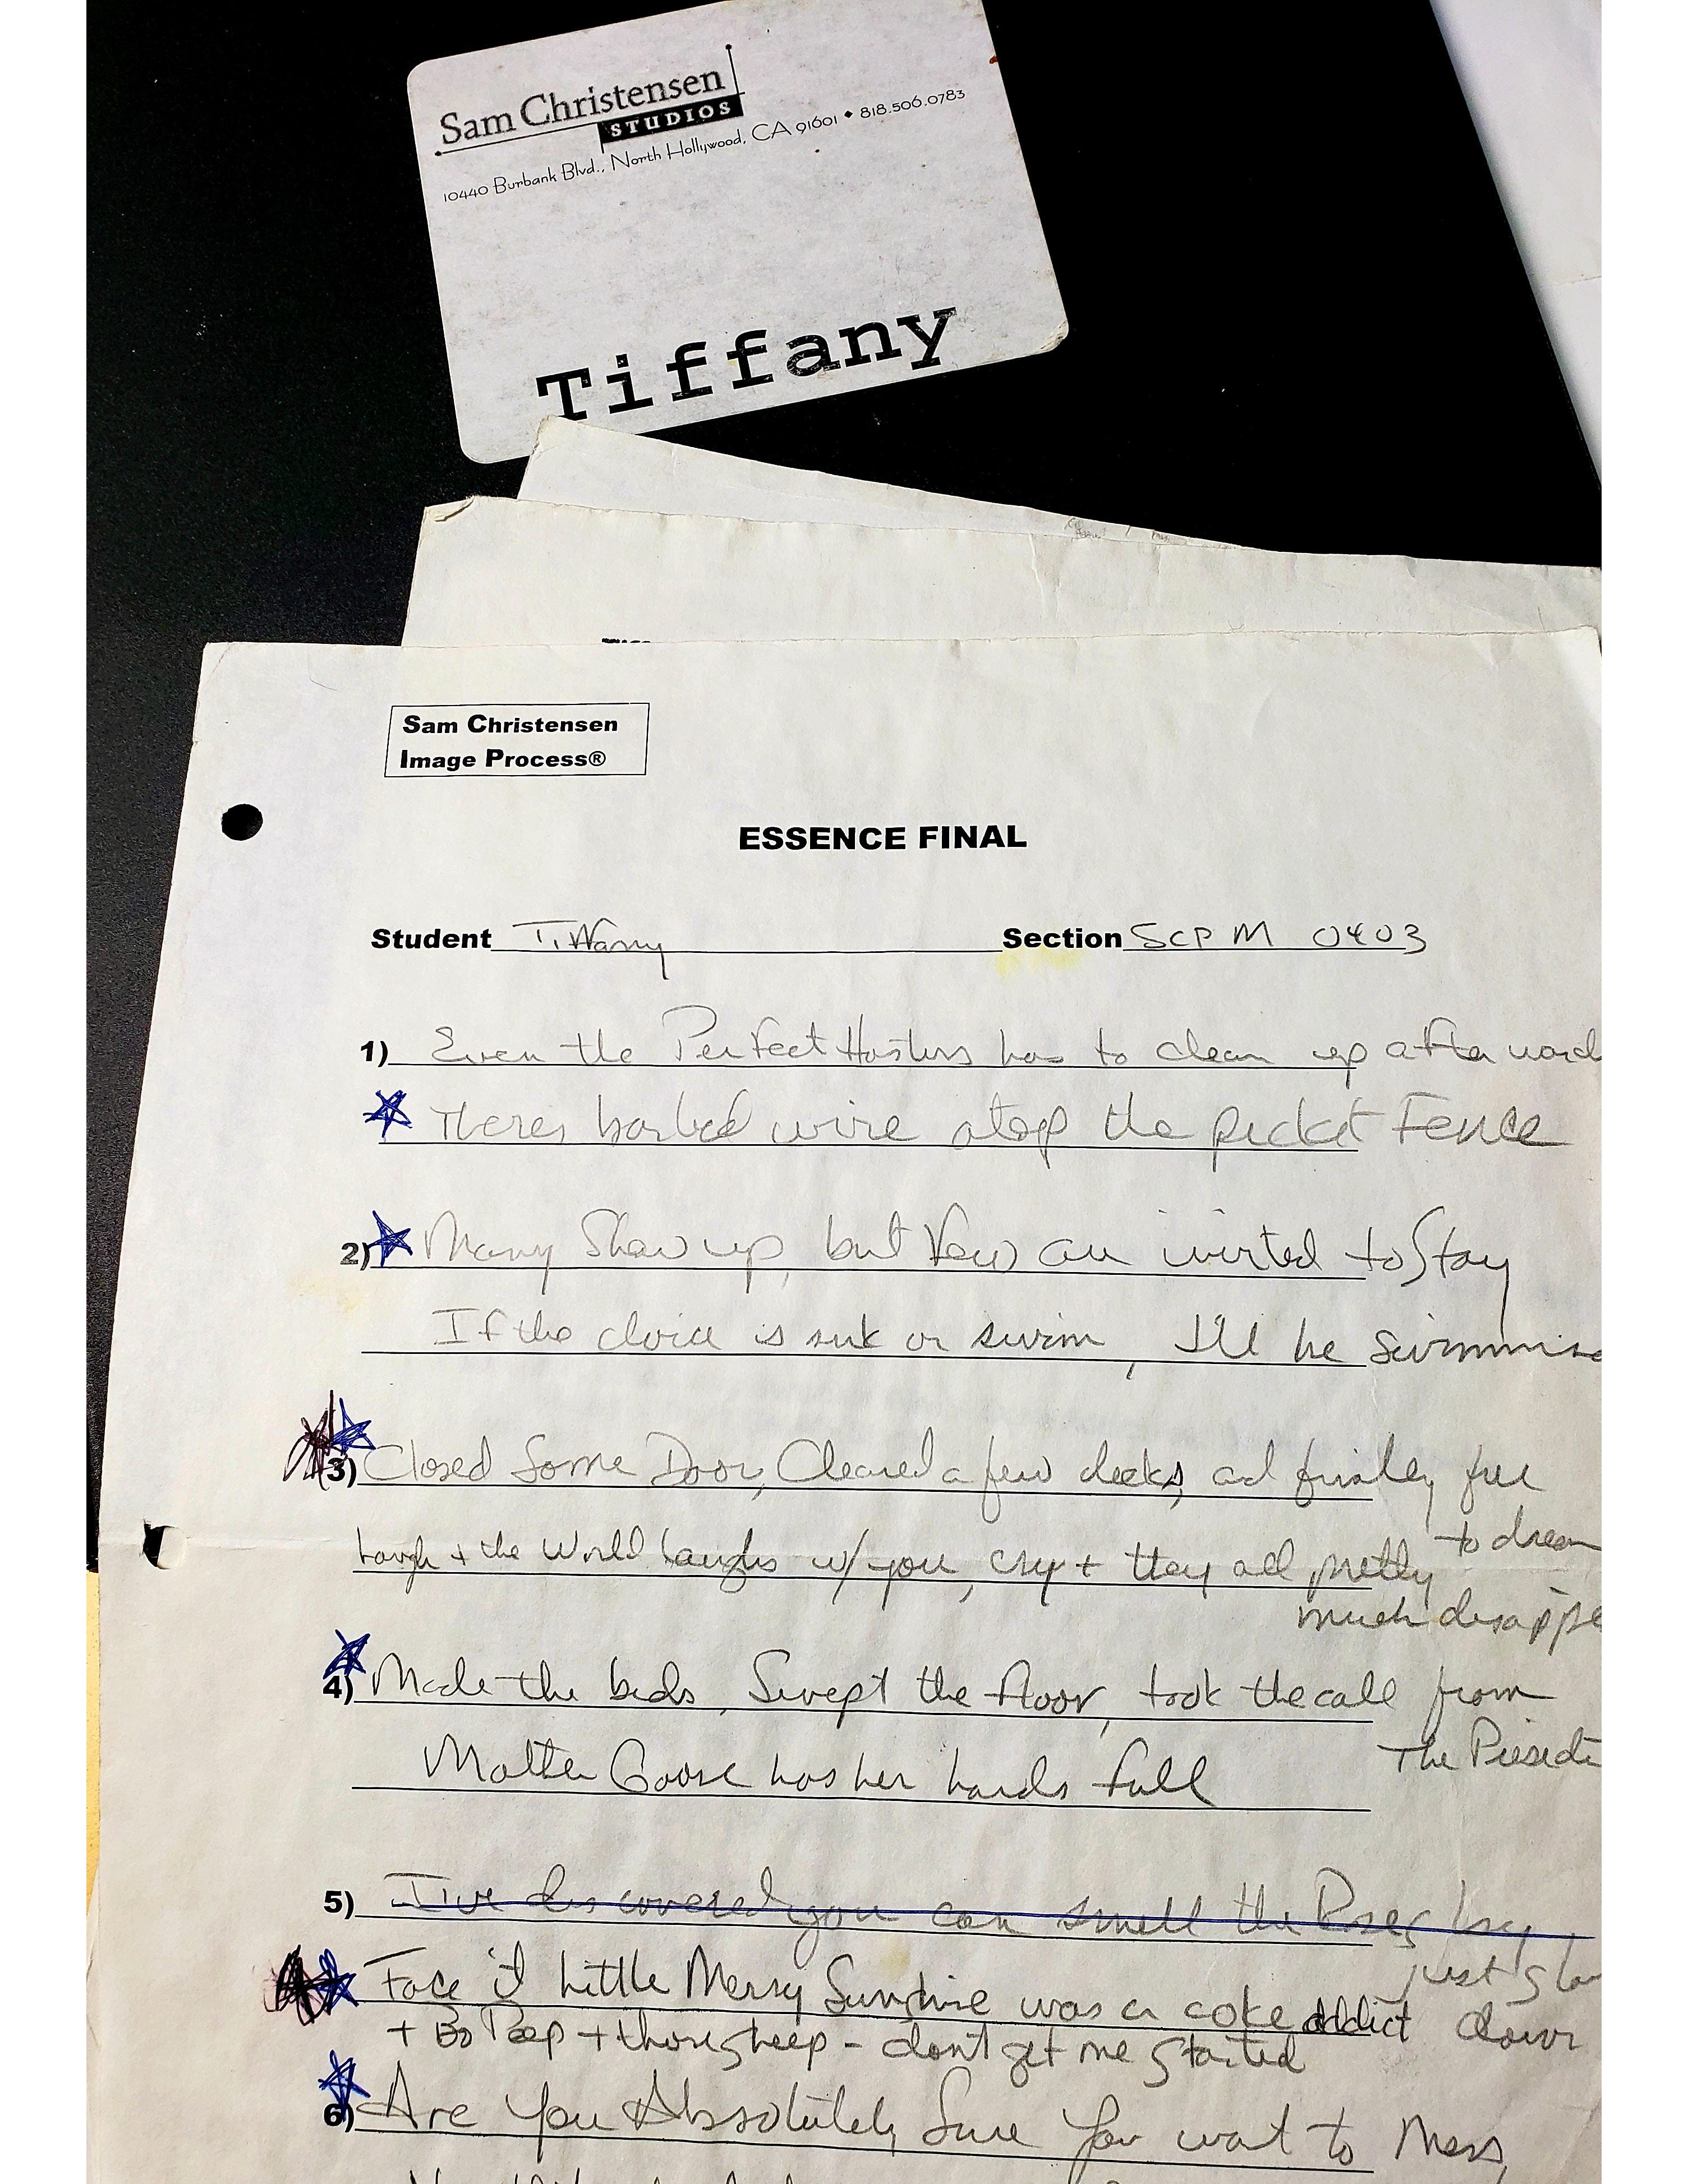 Sam Christensen
STUDIOS
10440 Burbank Blvd., North Hollywood, CA 91601 • 818.506.0783
Tiffany
Sam Christensen
Image Process®
ESSENCE FINAL
Student Tiffany Section SCP M 0403
1) Even the Perfect Hostess has to clean up afterward
Theres barbed wire atop the picket Fence
2) Many Show up, but few are invited to Stay
If the choice is sink or swim, I'll be Swimming
3) Closed Some Doors, Cleared a few decks, and finally free
to dream
Laugh + the World laughs w/you, cry + they all pretty
much disappe
4) Made the beds, Swept the floor, took the call from
The Preside
Mother Goose has her hands full
5) I've discovered you can smell the Roses by
just slow
down
Face it Little Merry Sunshine was a coke addict
+ Bo Peep + those sheep - don't get me started
6) Are You Absolutely Sure You want to Mess,